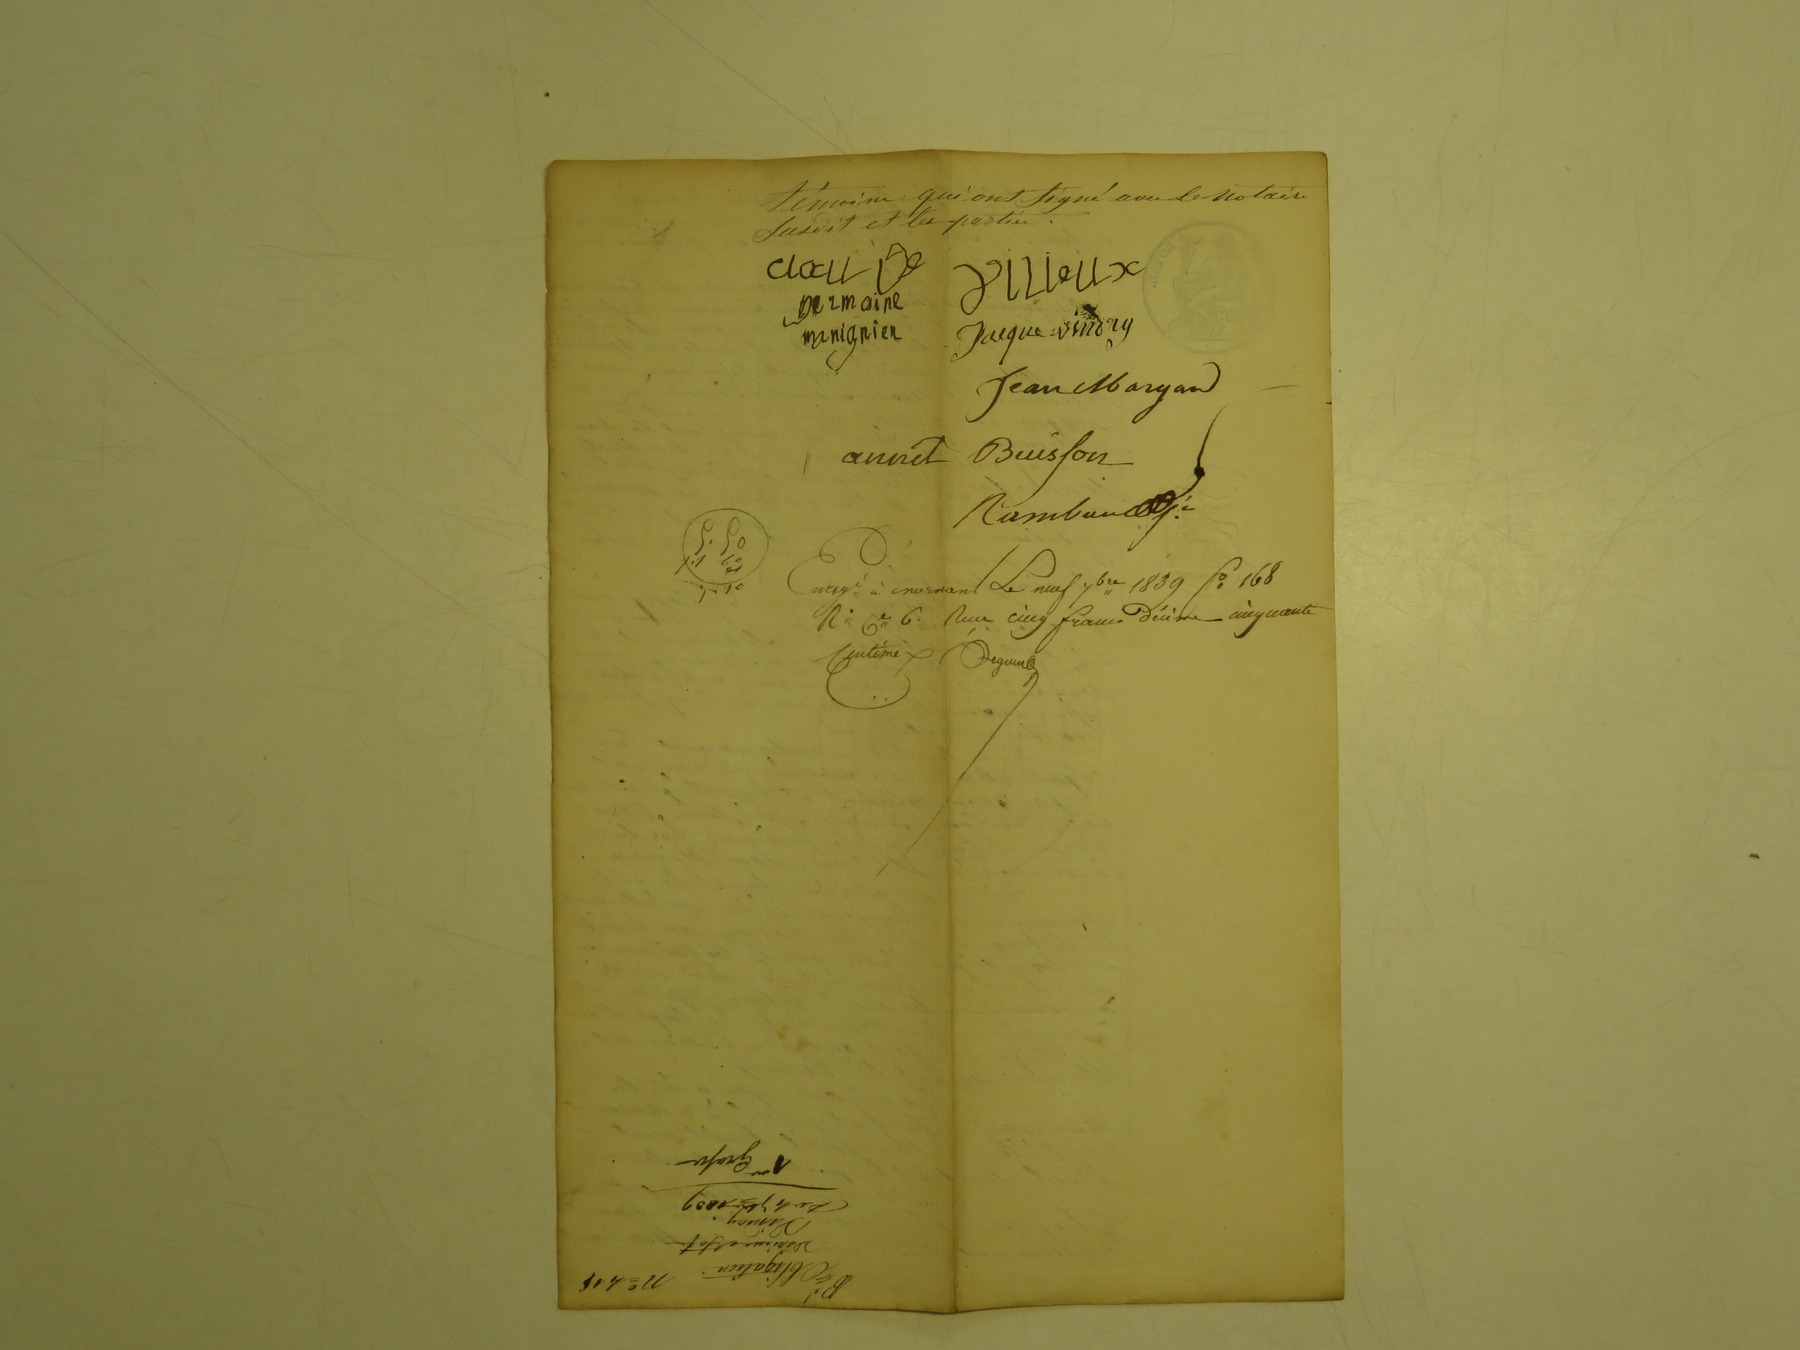 témoins qui ont signé avec le notaire
susdit et les parties.
claude villieux
germaine
manignien Jacque vindry
Jean Margand
annet Buisson
Rambaud
5. 50
Enregé à mornant Le neuf 7bre 1839 fo 168
Ro Ce 6. Reçu cinq francs Décime cinquante
Centimes
No 418
Obligation
Vindry
Le 4 7bre 1839
1ere Grosse